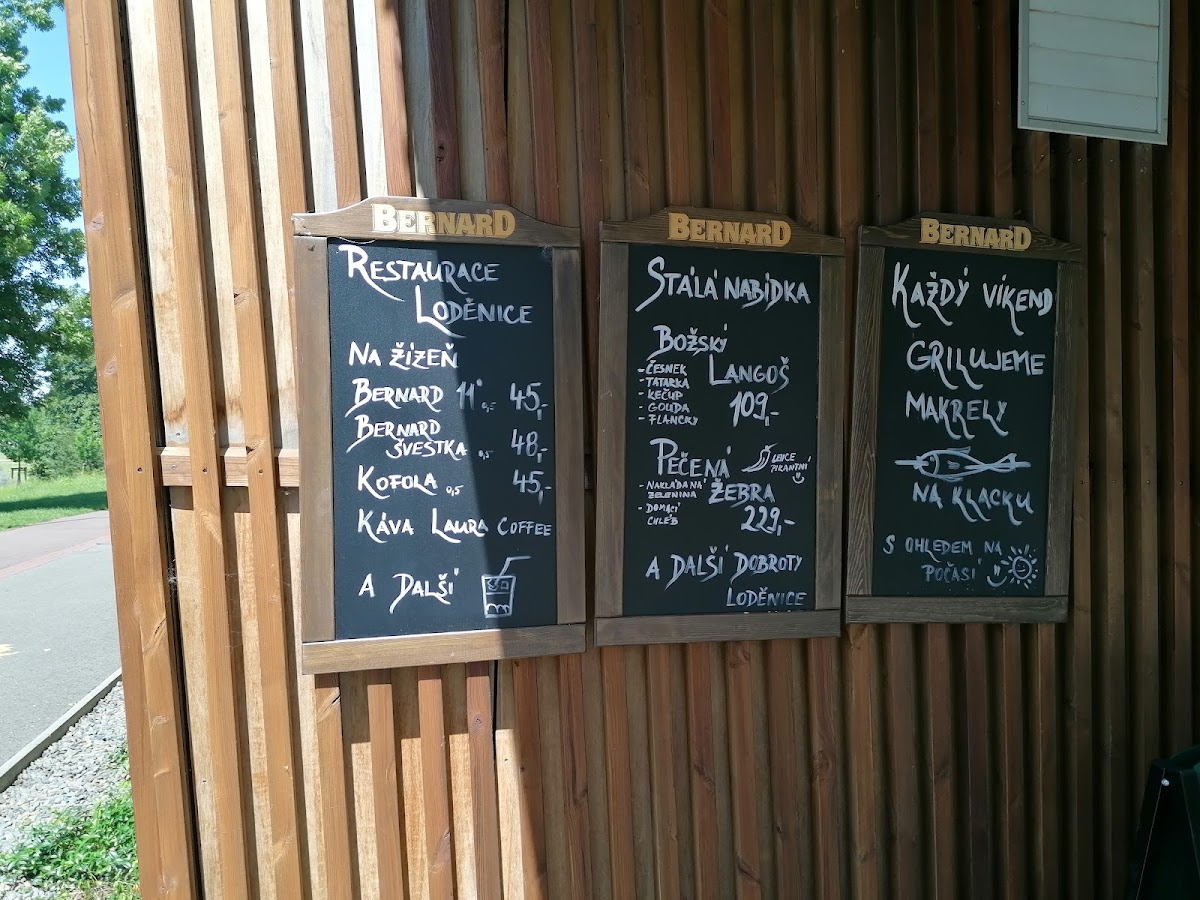 BERNARD
RESTAURACE
LODĚNICE
NA ŽÍZEŇ
BERNARD 11° 0,5 45,-
BERNARD
ŠVESTKA 0,5 48,-
KOFOLA 0,5 45,-
KÁVA LAURA COFFEE
A DALŠÍ
BERNARD
STÁLÁ NABÍDKA
BOŽSKÝ
LANGOŠ
- ČESNEK
- TATARKA
- KEČUP
- GOUDA
- FLANCKY
109,-
PEČENÁ
ŽEBRA
LEHCE
PIKANTNÍ
- NAKLÁDANÁ
ZELENINA
- DOMÁCÍ
CHLÉB
229,-
A DALŠÍ DOBROTY
LODĚNICE
BERNARD
KAŽDÝ VÍKEND
GRILUJEME
MAKRELY
NA KLACKU
S OHLEDEM NA
POČASÍ